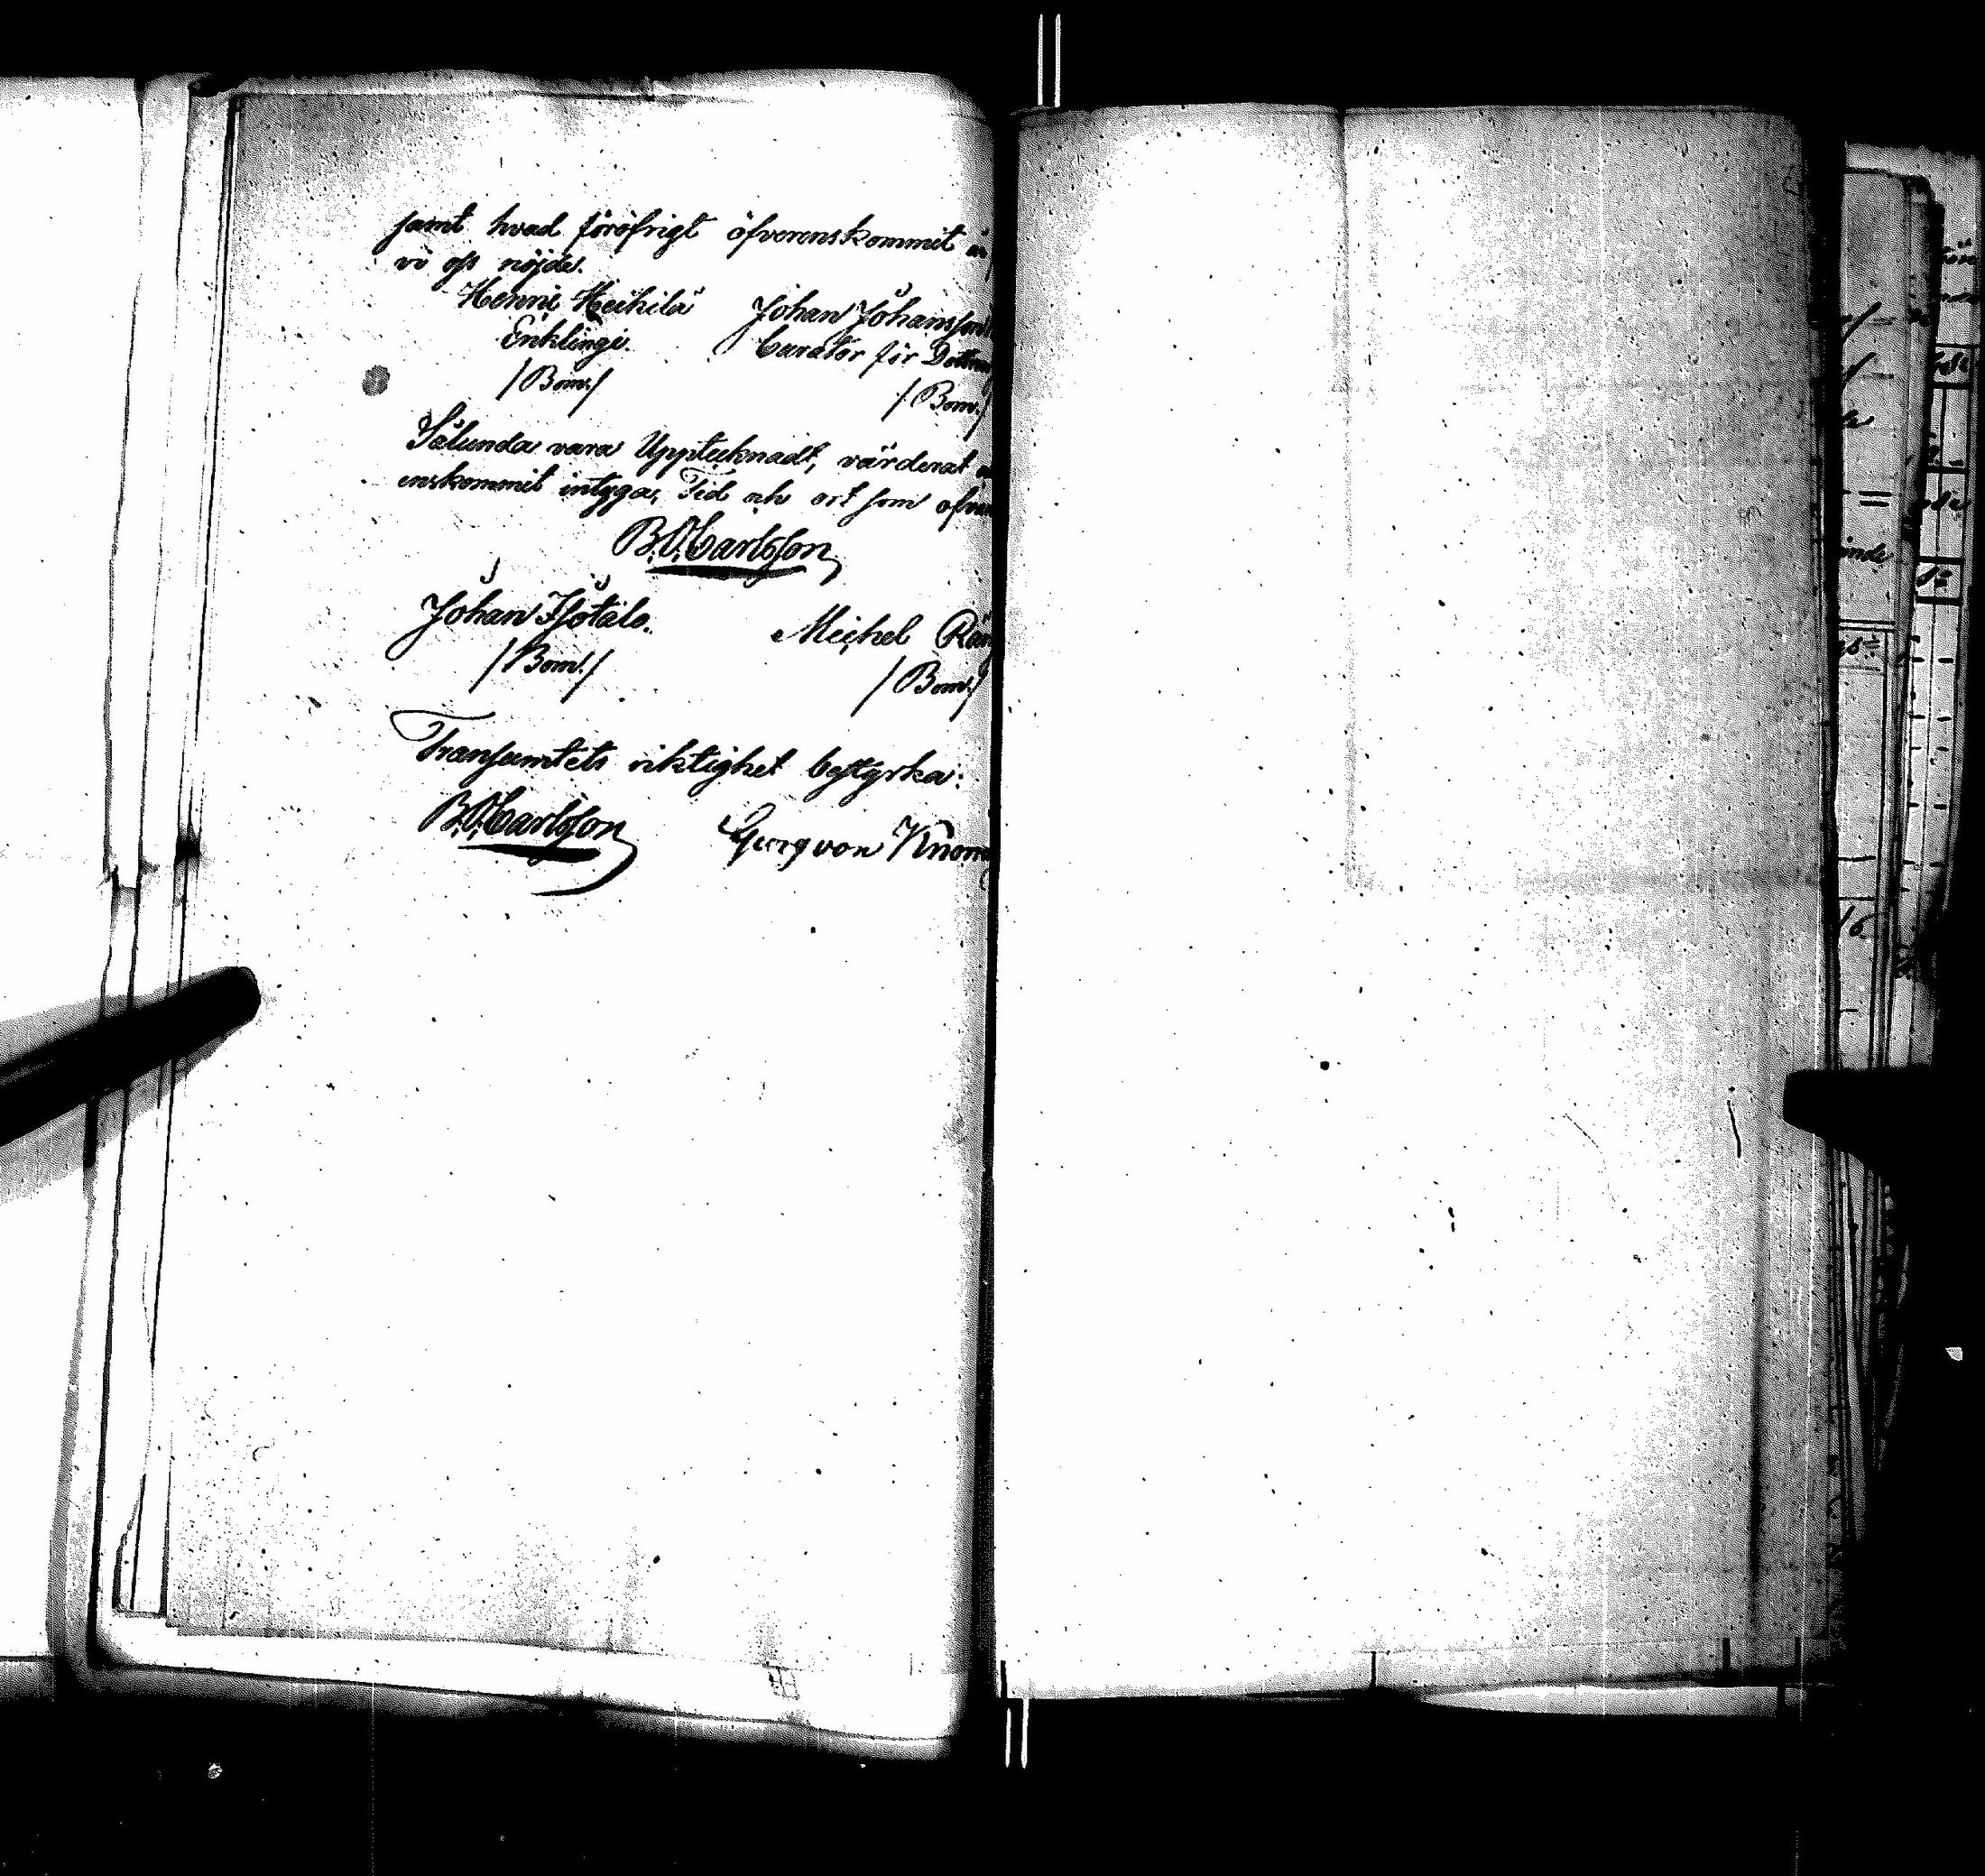 samt hvad föröfrigt öfverenskommit
vi oss nöjde.
Henric Heikilä Johan Johansson
Enklinge. Curator för
/Bom./ /Bom./
Sålunda vara Upptecknadt, värderat
enskommit intyga, Tid och ort som
B.O.Carlsson
Johan Isotalo. Michel
/Bom./ /Bom./
Transumtets riktighet bestyrka:
B.O.Carlsson Georg von